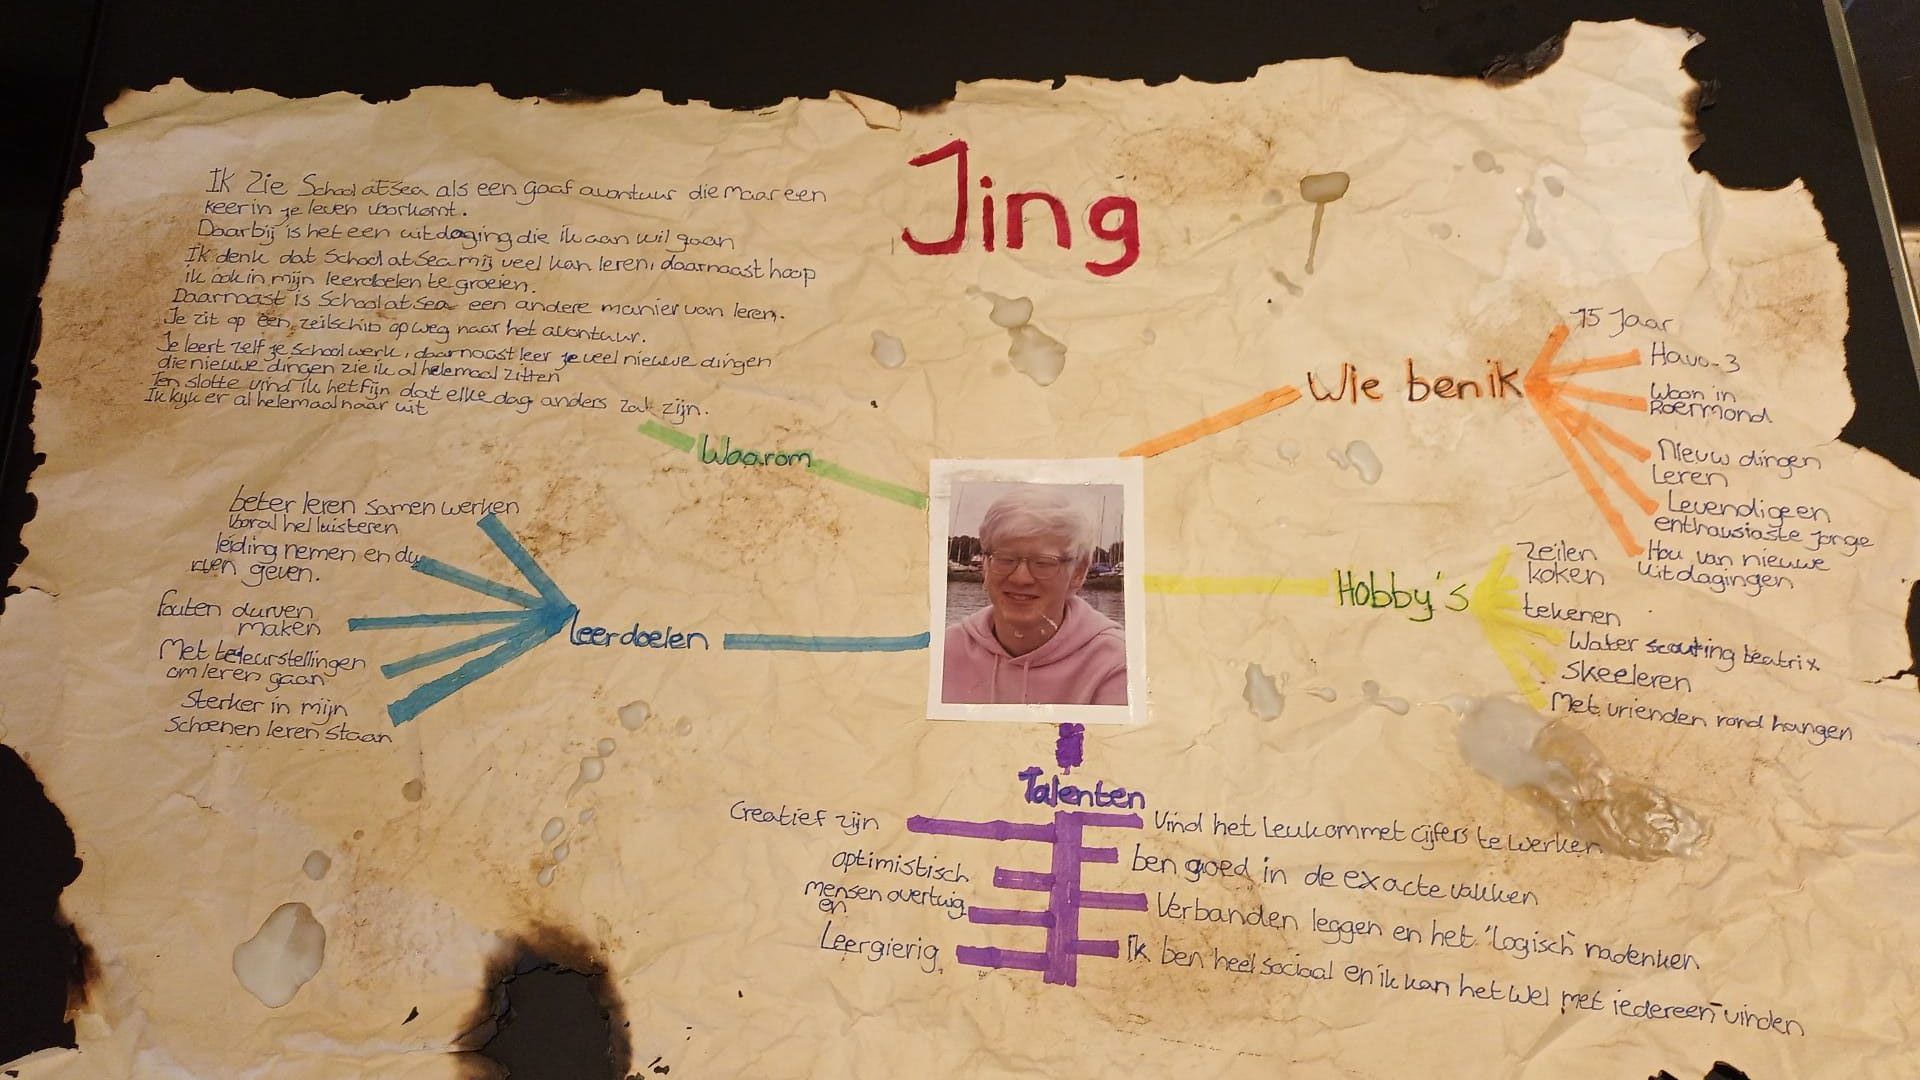 Jing
Ik zie School at sea als een gaaf avontuur die maar een
keer in je leven voorkomt.
Daarbij is het een uitdaging die ik aan wil gaan
Ik denk dat School at Sea mij veel kan leren, daarnaast hoop
ik ook in mijn leerdoelen te groeien.
Daarnaast is School at Sea een andere manier van leren.
Je zit op een zeilschip op weg naar het avontuur.
Je leert zelf je schoolwerk, daarnaast leer je veel nieuwe dingen
die nieuwe dingen zie ik al helemaal zitten
Ten slotte vind ik het fijn dat elke dag anders zal zijn.
Ik kijk er al helemaal naar uit
Waarom
Wie ben ik
15 Jaar
Havo-3
Woon in
Roermond
Nieuw dingen
Leren
Levendige en
enthausiaste jonge
Hou van nieuwe
uitdagingen
Hobby's
Zeilen
koken
tekenen
Water scouting beatrix
Skeeleren
Met vrienden rond hangen
leerdoelen
beter leren samen werken
vooral hel luisteren
leiding nemen en du
rven geven.
fouten durven
maken
Met teleurstellingen
om leren gaan
Sterker in mijn
Schoenen leren staan
Talenten
Creatief zijn
optimistisch
mensen overtuig
en
Leergierig
Vind het leuk om met cijfers te werken
ben goed in de exacte vakken
Verbanden leggen en het 'logisch' nadenken
Ik ben heel sociaal en ik kan het wel met iedereen vinden